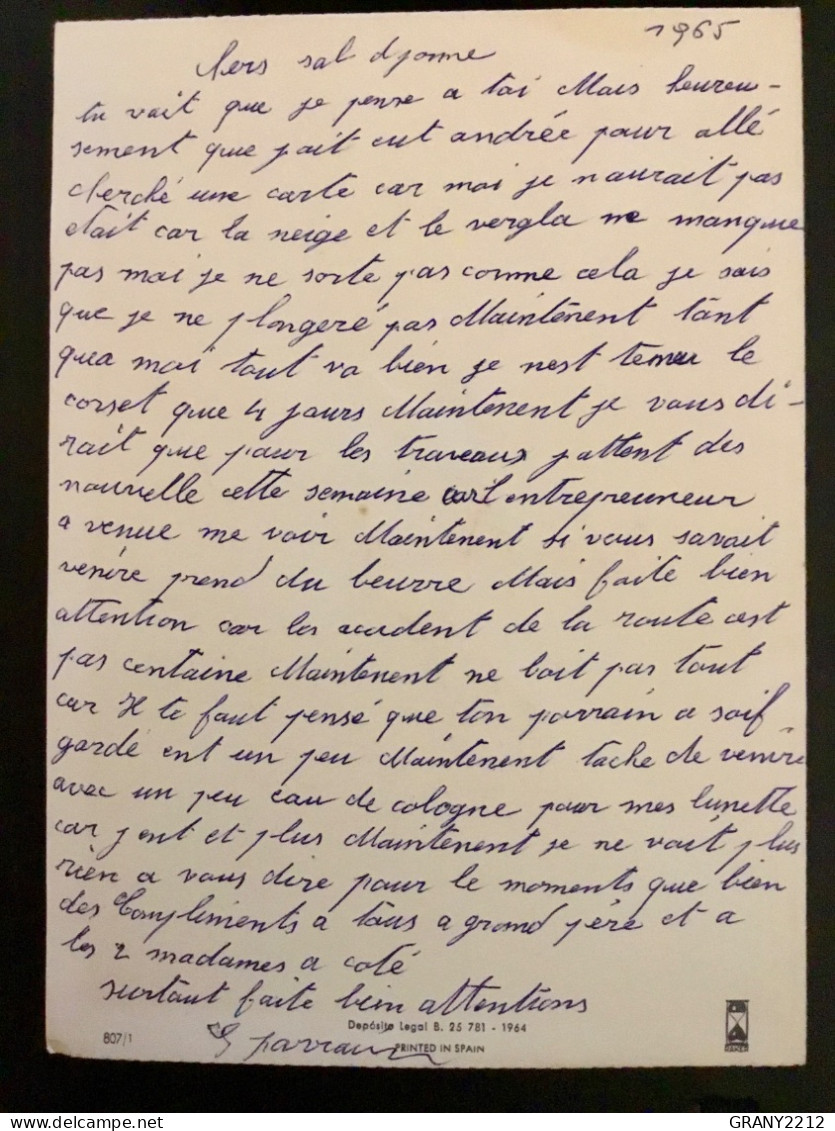 1965
sal djonne
tu vait que je pense a toi Mais heureu-
sement que jait eut andrée pour allé
cherché une carte car moi je naurait pas
etait car la neige et le vergla ne manque
pas moi je ne sorte pas comme cela je sais
que je ne plongeré pas Maintenent tant
qua moi tout va bien je nest tenu le
corset que 4 jours Maintenent je vous di-
rait que pour les traveaux jattent des
nouvelle cette semaine car l'entrepreuneur
a venue me voir Maintenent si vous savait
venire prend du beurre Mais faite bien
attention car les accident de la route cest
pas centaine Maintenent ne boit pas tout
car Il te faut pensé que ton parrain a soif
garde ent un peu Maintenent tache de venire
avec un peu eau de cologne pour mes lunette
car jent et plus Maintenent je ne vait plus
rien a vous dire pour le moments que bien
des Compliments a tous a grand père et a
les 2 madames a coté
surtout faite bien attentions
parrain
Depósito Legal B. 25 781 - 1964
807/1
PRINTED IN SPAIN
GRANY2212